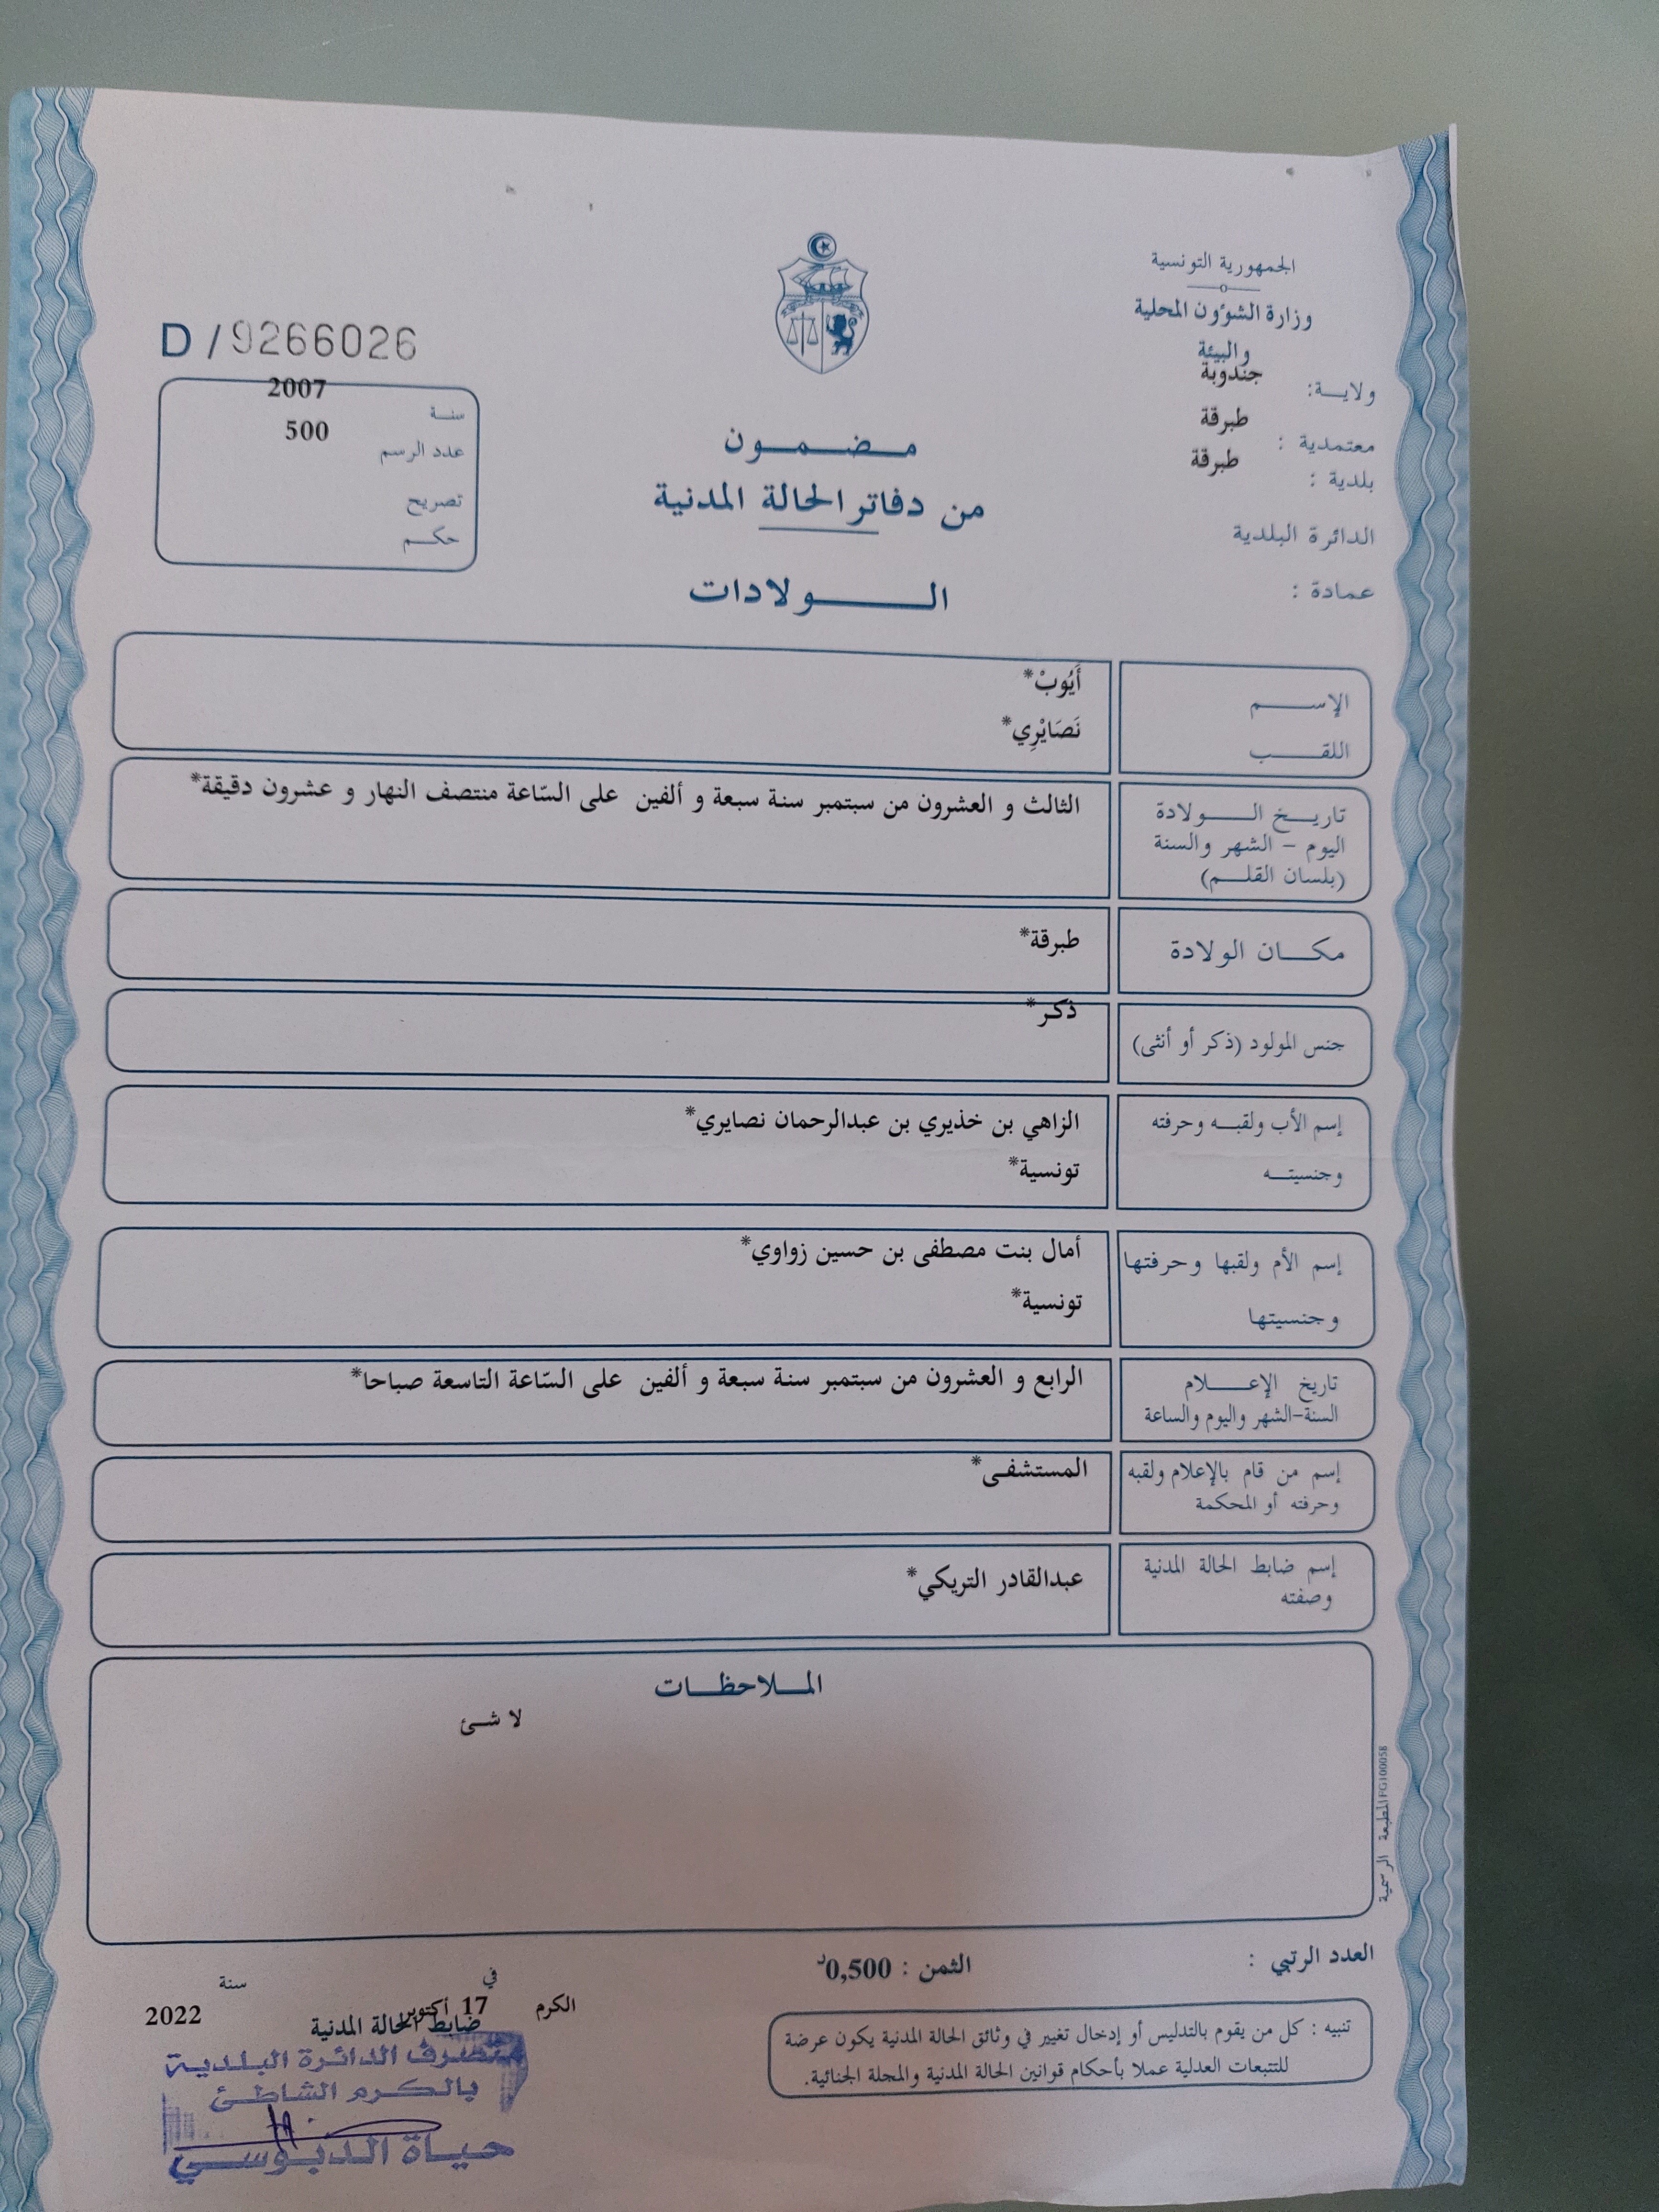 الجمهورية التونسية
وزارة الشؤون المحلية
والبيئة
ولايــة: جندوبة
معتمدية : طبرقة
بلدية : طبرقة
الدائرة البلدية
عمادة :
D / 9266026
سنة 2007
عدد الرسم 500
تصريح
حكم
مضمون
من دفاتر الحالة المدنية
الولادات
الإسم أَيُوبْ*
اللقب نَصَايْرِي*
تاريخ الولادة
اليوم - الشهر والسنة
(بلسان القلم)
الثالث و العشرون من سبتمبر سنة سبعة و ألفين على السّاعة منتصف النهار و عشرون دقيقة*
مكان الولادة طبرقة*
جنس المولود (ذكر أو أنثى) ذكر*
إسم الأب ولقبه وحرفته الزاهي بن خذيري بن عبدالرحمان نصايري*
وجنسيته تونسية*
إسم الأم ولقبها وحرفتها أمال بنت مصطفى بن حسين زواوي*
وجنسيتها تونسية*
تاريخ الإعلام
السنة-الشهر واليوم والساعة
الرابع و العشرون من سبتمبر سنة سبعة و ألفين على السّاعة التاسعة صباحا*
إسم من قام بالإعلام ولقبه
وحرفته أو المحكمة
المستشفى*
إسم ضابط الحالة المدنية
وصفته
عبدالقادر التريكي*
الملاحظات
لا شئ
المطبعة الرسمية FG100058
العدد الرتبي :
الثمن : 0,500د
تنبيه : كل من يقوم بالتدليس أو إدخال تغيير في وثائق الحالة المدنية يكون عرضة
للتتبعات العدلية عملا بأحكام قوانين الحالة المدنية والمجلة الجنائية.
الكرم في 17 أكتوبر سنة 2022
ضابط الحالة المدنية
متصرف الدائرة البلدية
بالكرم الشاطئ
حياة الدبوسي